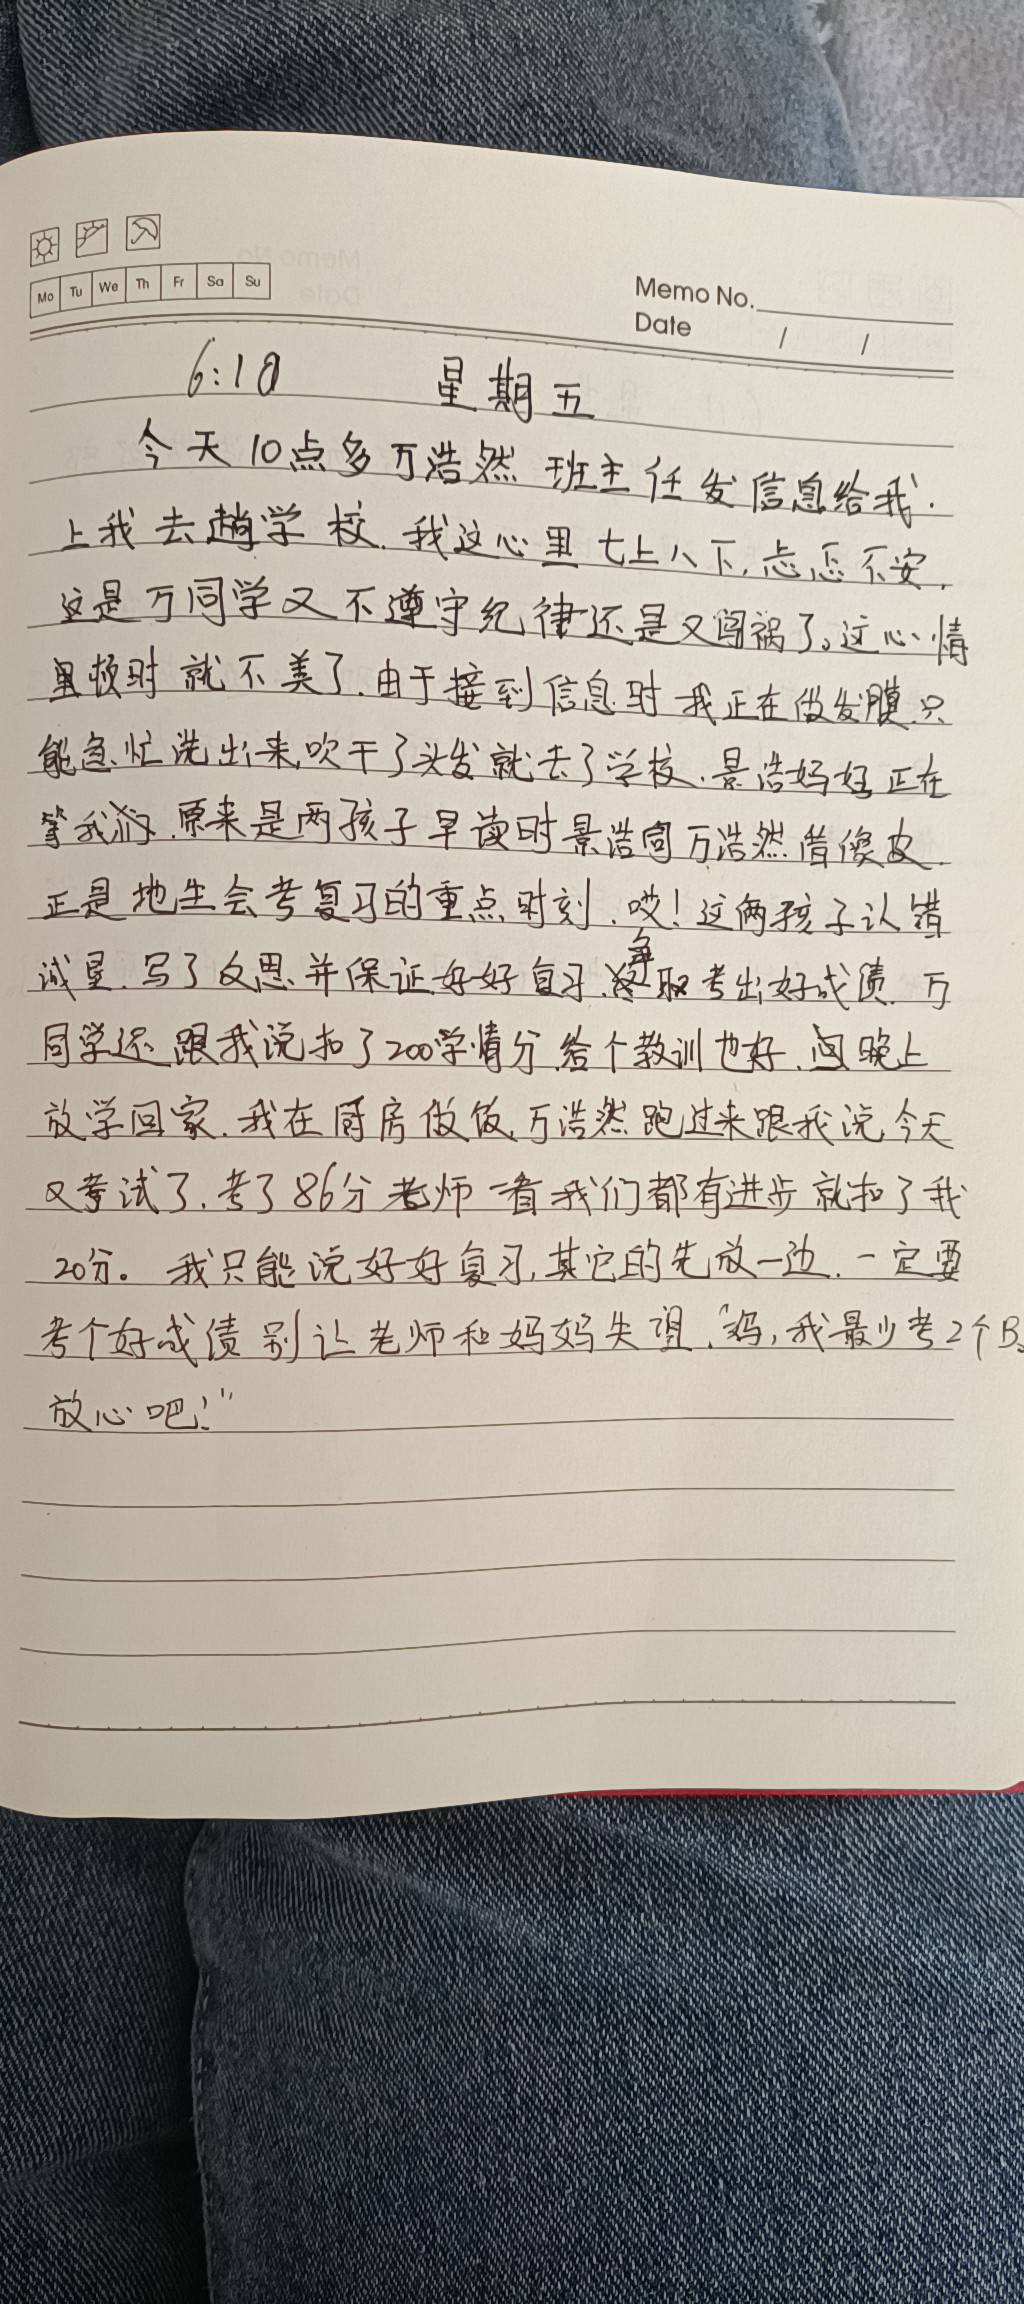 Mo Tu We Th Fr Sa Su
Memo No.
Date / /
6:10 星期五
今天10点多万浩然班主任发信息给我.
上我去趟学校.我这心里七上八下,忐忑不安.
这是万同学又不遵守纪律还是又闯祸了。这心情
里顿时就不美了.由于接到信息时我正在做发膜.只
能急忙洗出来,吹干了头发就去了学校.景浩妈妈正在
等我们.原来是两孩子早读时景浩向万浩然借像皮.
正是地生会考复习的重点时刻.哎!这俩孩子认错
诚恳.写了反思.并保证好好复习.争取考出好成债.万
同学还跟我说扣了200学情分.给个教训也好.晚上
放学回家.我在厨房做饭,万浩然跑过来跟我说,今天
又考试了.考了86分老师一看我们都有进步就扣了我
20分。我只能说好好复习,其它的先放一边.一定要
考个好成债别让老师和妈妈失望.“妈,我最少考2个B。
放心吧!”